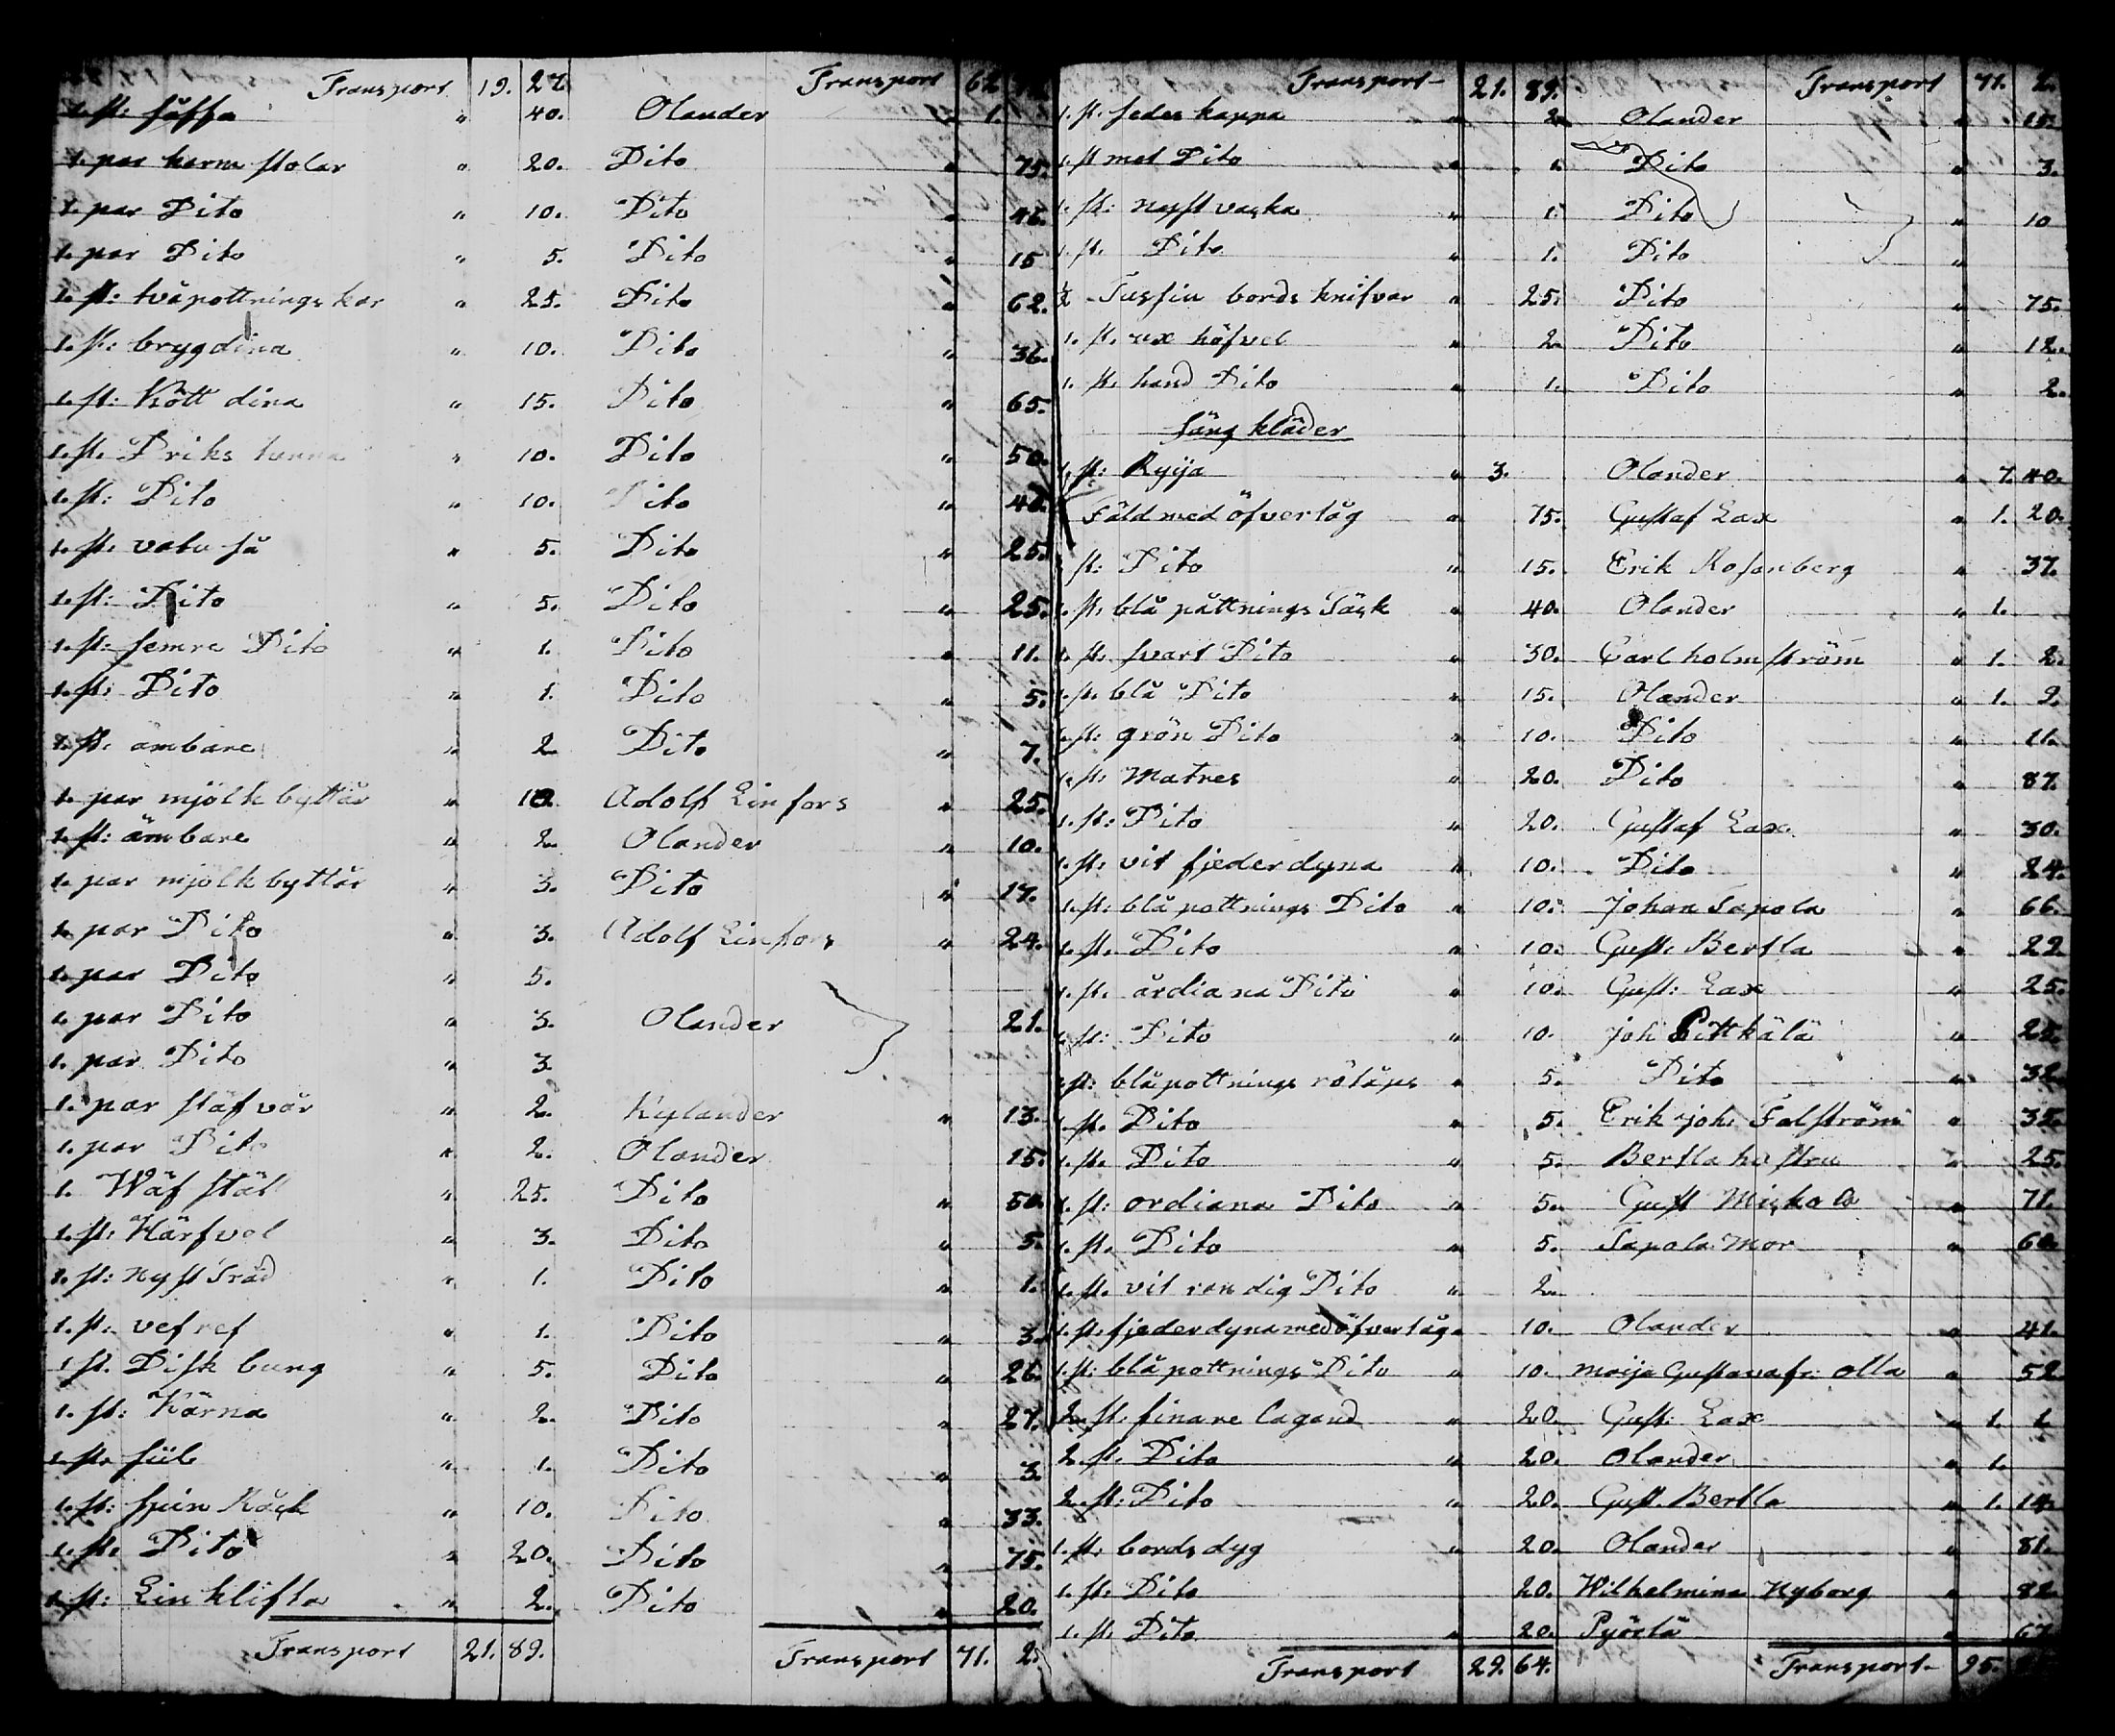 Transport 19. 27. Transport 62
1. st: såffa " 40. Olander 1.
1. par karm stolar " 20. Dito " 75.
1. par Dito " 10. Dito " 46.
1. par Dito " 5. Dito " 15
1. st: tvåpottnings kar " 25. Dito " 62.
1. st: brygdina " 10. Dito " 36.
1. st: Kött dina " 15. Dito " 65.
1. st. Driks tunna " 10. Dito " 50.
1. st: Dito " 10. Dito " 40.
1. st. vatu så " 5. Dito " 25.
1. st: Dito " 5. Dito " 25.
1. st: semre Dito " 1. Dito " 11.
1. st: Dito " 1. Dito " 5.
1. st. ämbare " 2. Dito " 7.
1. par mjölk byttår " 10. Adolf Linfors " 25.
1. st: ämbare " 2. Olander " 10.
1. par mjölk byttår " 3. Dito " 17.
1. par Dito " 3. Adolf Linfors " 24.
1. par Dito " 5.
1. par Dito " 3. Olander 21.
1. par Dito " 3
1. par stäfvår " 2. Kylander " 13.
1. par Dito " 2. Olander 15.
1. Wäf stål " 25. Dito " 50.
1. st: Härfvel " 3. Dito " 5.
1. st: nyst Tråd " 1. Dito " 1.
1. st. vef ref " 1. Dito " 3.
1 st. Disk bung " 5. Dito " 26.
1. st: Kärna " 2. Dito " 27.
1. st. siil " 1. Dito " 3
1. st: spin Råck " 10. Dito " 33.
1. st. Dito " 20. Dito " 75.
1. st: Lin klifta " 2. Dito " 20.
Transport 21. 89. Transport 71. 2.
Transport 21. 89. Transport 71. 2.
1. st. seder kappa " 2 Olander " 15.
1. st mot Dito " " Dito " 3.
1. st: nystvacka " 1. Dito " 10
1. st. Dito " 1. Dito "
½ Tusfin bords knifvar " 25. Dito " 75.
1. st. ux höfvel " 2 Dito " 12.
1. st. hand Dito " 1. Dito " 2.
säng kläder
1. st: Ryija " 3. Olander " 7. 40.
Fäld med öfvertåg " 75. Gustaf Lax " 1. 20.
st: Dito " 15. Erik Rosenberg " 37.
1. st. blå påttnings Säck " 40. Olander " 1.
1. st. svart Dito " 30. Carl holmström " 1. 2.
1. st. blå Dito " 15. Olander " 1. 2.
1. st: grön Dito " 10. Dito " 11.
1. st. Matres " 20. Dito " 87.
1. st: Dito " 20. Gustaf Lax " 30.
1. st. vit fjederdyna " 10. Dito " 24.
1. st: blå pottnings Dito " 10. Johan Tapola " 66.
1. st. Dito " 10. Gust. Bertla " 22.
1. st. årdiana Dito " 10. Gust: Lax " 25.
1. st: Dito " 10. joh Pittkälä " 25.
1 st: blåpottnings " 5. Dito " 32.
1. st. Dito " 5. Erik joh. Falström " 35.
1. st. Dito " 5. Bertla hustru " 25.
1. st: ordiana Dito " 5. Gust Mickola " 71.
1. st. Dito " 5. Tapola Mor " 60.
1. st. vit randig Dito " 2.
1. st. fjederdyna med öfvertåg " 10. Olander " 41.
1. st: blå pottnings Dito " 10. Maija Gustava fr: Olla " 52
2. st: finare Lagand " 20. Gust: Lax " 1. 1.
2. st. Dito " 20. Olander " 1.
2. st: Dito " 20. Gust. Bertla " 1. 14.
1. st. bordsdyg " 20. Olander " 81.
1. st. Dito 20. Wilhelmina Nyborg " 82.
1. st. Dito " 20. Pyörlä " 67.
Transport 29. 64. Transport 95.